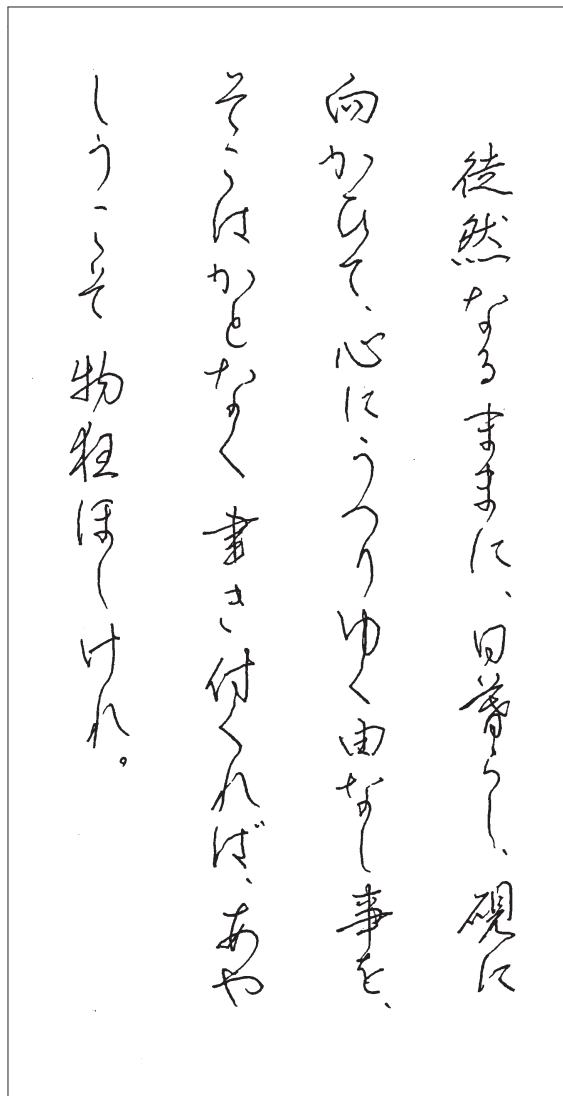 徒然なるままに、日暮らし、硯に
向かひて、心にうつりゆく由なし事を、
そこはかとなく書き付くれば、あや
しうこそ物狂ほしけれ。